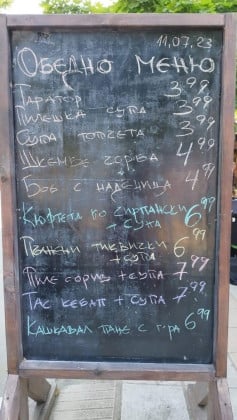 11.07.23
ОБЕДНО МЕНЮ
ТАРАТОР 3,99
ПИЛЕШКА СУПА 3,99
СУПА ТОПЧЕТА 3,99
ШКЕМБЕ ЧОРБА 4,99
БОБ С НАДЕНИЦА 4,99
КЮФТЕТА ПО СИРПАНСКИ 6,99
+ СУПА
ПЪЛНЕНИ ТИКВИЧКИ 6,99
+ СУПА
ПИЛЕ СОРИЗ + СУПА 7,99
ТАС КЕБАП + СУПА 7,99
КАШКАВАЛ ПАНЕ С Г-РА 6,99